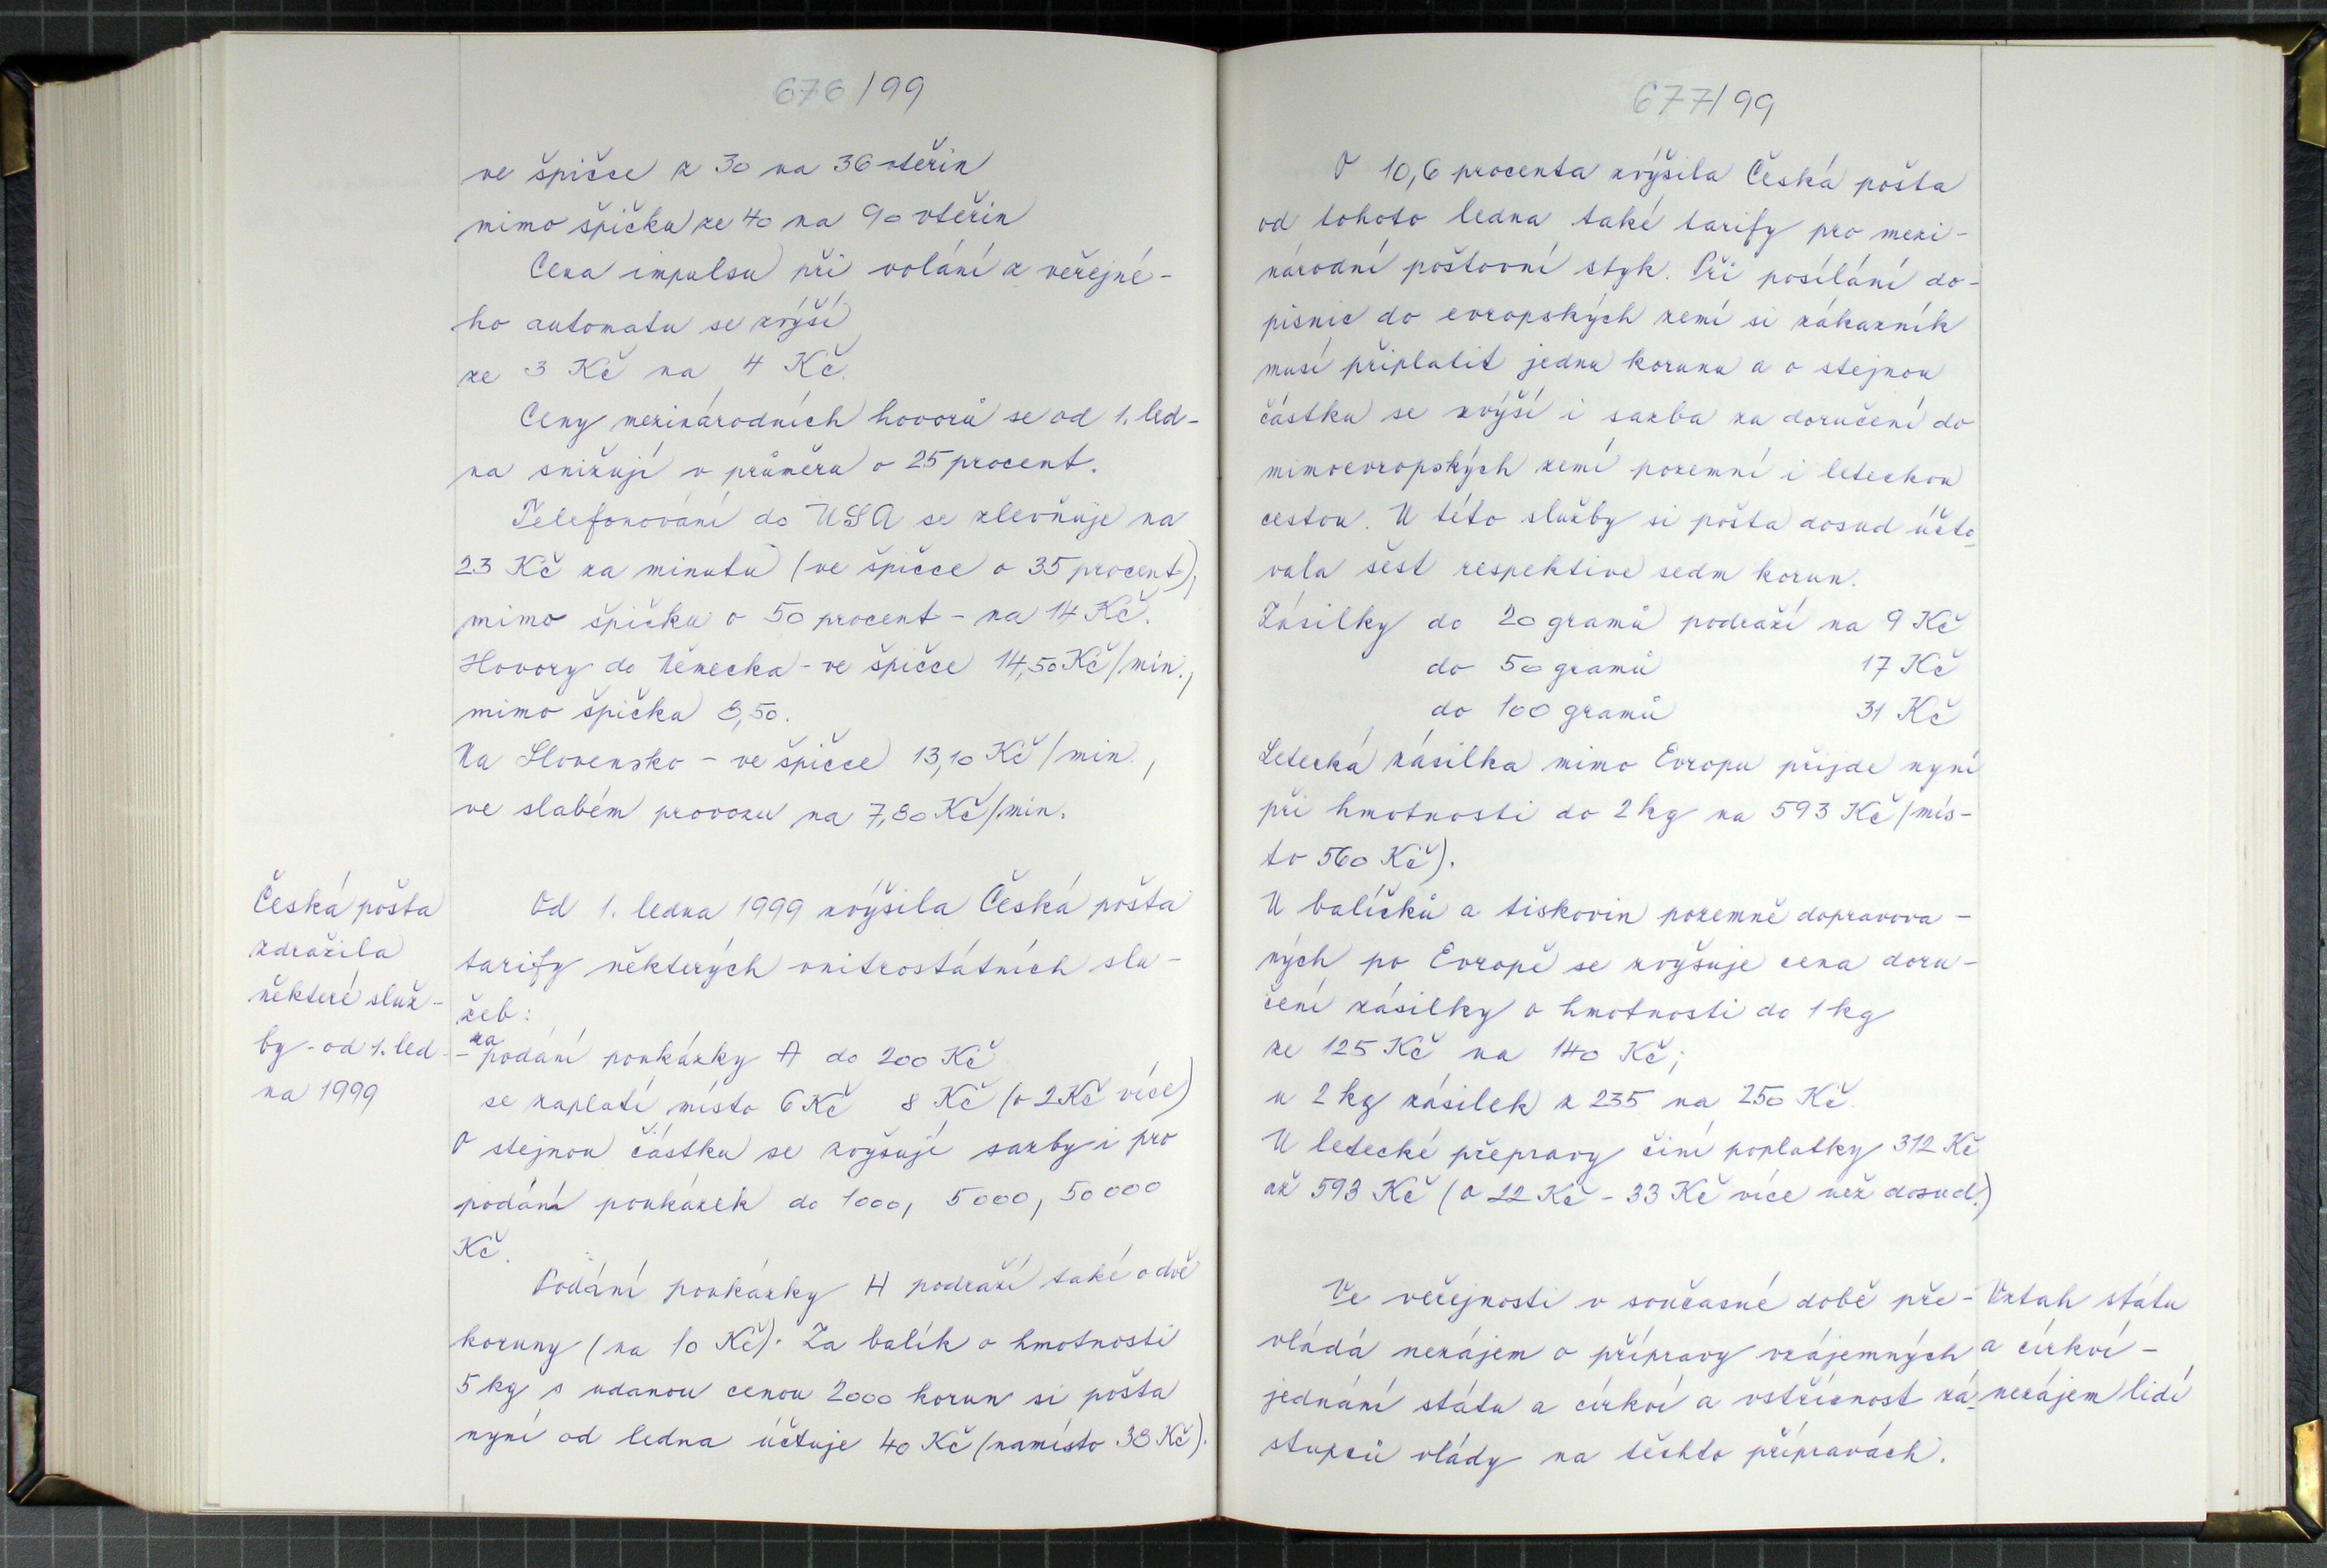 676/99
ve špičce z 30 na 36 vteřin
mimo špičku ze 40 na 90 vteřin
Cena impulsu při volání z veřejné-
ho automatu se zvýší
ze 3 Kč na 4 Kč.
Ceny mezinárodních hovorů se od 1. led-
na snižují v průměru o 25 procent.
Telefonování do USA se zlevňuje na
23 Kč za minutu (ve špičce o 35 procent),
mimo špičku o 50 procent - na 14 Kč.
Hovory do Německa - ve špičce 14,50 Kč/min.,
mimo špičku 8,50.
Na Slovensko - ve špičce 13,10 Kč/min.,
ve slabém provozu na 7,80 Kč/min.
Česká pošta
zdražila
některé služ-
by - od 1. led-
na 1999
Od 1. ledna 1999 zvýšila Česká pošta
tarify některých vnitrostátních slu-
žeb:
- za podání poukázky A do 200 Kč
se zaplatí místo 6 Kč 8 Kč (o 2 Kč více)
O stejnou částku se zvyšují sazby i pro
podání poukázek do 1000, 5000, 50000
Kč.
Podání poukázky H podraží také o dvě
koruny (na 10 Kč). Za balík o hmotnosti
5 kg s udanou cenou 2000 korun si pošta
nyní od ledna účtuje 40 Kč (namísto 38 Kč).
677/99
O 10,6 procenta zvýšila Česká pošta
od tohoto ledna také tarify pro mezi-
národní poštovní styk. Při posílání do-
pisnic do evropských zemí si zákazník
musí připlatit jednu korunu a o stejnou
částku se zvýší i sazba za doručení do
mimoevropských zemí pozemní i leteckou
cestou. U této služby si pošta dosud účto-
vala šest respektive sedm korun.
Zásilky do 20 gramů podraží na 9 Kč
do 50 gramů 17 Kč
do 100 gramů 31 Kč
Letecká zásilka mimo Evropu přijde nyní
při hmotnosti do 2 kg na 593 Kč (mís-
to 560 Kč).
U balíčků a tiskovin pozemně dopravova-
ných po Evropě se zvyšuje cena doru-
čení zásilky o hmotnosti do 1 kg
ze 125 Kč na 140 Kč;
u 2 kg zásilek z 235 na 250 Kč.
U letecké přepravy činí poplatky 312 Kč
až 593 Kč (o 22 Kč - 33 Kč více než dosud.)
Ve veřejnosti v současné době pře-
vládá nezájem o přípravy vzájemných
jednání státu a církví a vstřícnost zá-
stupců vlády na těchto přípravách.
Vztah státu
a církví -
nezájem lidí